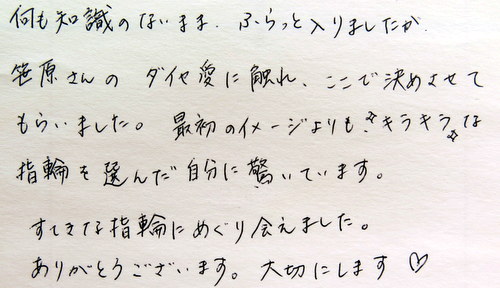 何も知識のないまま、ふらっと入りましたが、
笹原さんの ダイヤ愛に触れ、ここで決めさせて
もらいました。 最初のイメージよりも☆キラキラ☆な
指輪を選んだ自分に驚いています。
すてきな指輪にめぐり会えました。
ありがとうございます。大切にします♡